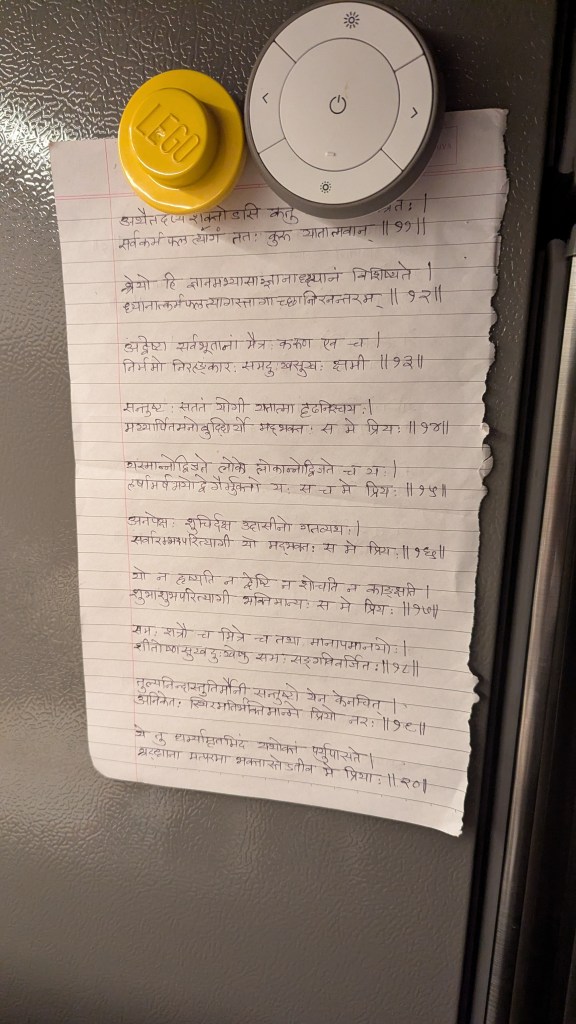 LEGO
अथैतदप्यशक्तोऽसि कर्तु
सर्वकर्मफलत्यागं ततः कुरू यातात्मवान् ||११||
श्रेयो हि ज्ञानमभ्यासाज्ज्ञानाध्ध्यानं विशिष्यते |
ध्यानात्कर्मफलत्यागस्त्यागाच्छान्तिरनन्तरम् || १२||
अद्वेष्टा सर्वभूतानां मैत्रः करुण एव च |
निर्ममो निरहङ्कारः समदुःखसुखः क्षमी ||१३||
सन्तुष्टः सततं योगी यतात्मा दृढनिश्चयः |
मय्यर्पितमनोबुद्धिर्यो मद्भक्तः स मे प्रियः ||१४||
यस्मान्नोद्विजते लोको लोकान्नोद्विजते च यः |
हर्षामर्षभयोद्वेगैर्मुक्तो यः स च मे प्रियः ||१५||
अनपेक्षः शुचिर्दक्ष उदासीनो गतव्यथः |
सर्वारम्भपरित्यागी यो मद्भक्तः स मे प्रियः ||१६||
यो न हृष्यति न द्वेष्टि न शोचति न काङ्क्षति |
शुभाशुभपरित्यागी भक्तिमान्यः स मे प्रियः ||१७||
समः शत्रौ च मित्रे च तथा मानापमानयोः |
शीतोष्णसुखदुःखेषु समः सङ्गविवर्जितः ||१८||
तुल्यनिन्दास्तुतिर्मौनी सन्तुष्टो येन केनचित् |
अनिकेतः स्थिरमतिर्भक्तिमान्मे प्रियो नरः ||१९||
ये तु धर्म्यामृतमिदं यथोक्तं पर्युपासते |
श्रद्दधाना मत्परमा भक्तास्तेऽतीव मे प्रियाः ||२०||